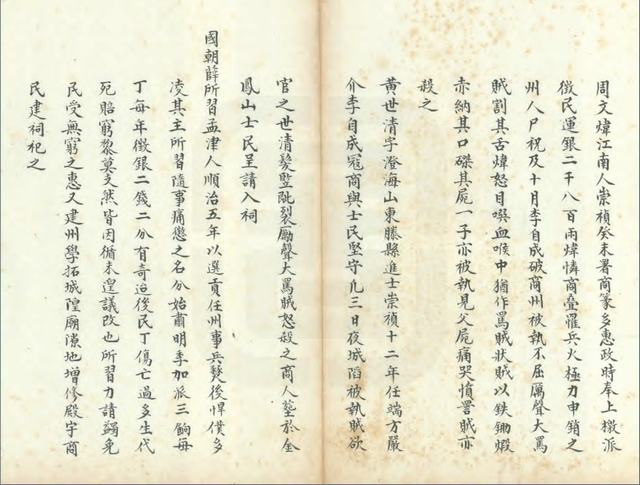 周文煒江南人崇禎癸未署商篆多惠政時奉上檄派
徵民運銀二千八百兩煒憐商疊罹兵火極力申銷之
州人尸祝及十月李自成破商州被執不屈厲聲大罵
賊割其舌煒怒目噀血喉中猶作罵賊狀賊以鉄鋤煅
赤納其口磔其屍一子亦被執見父屍痛哭憤詈賊亦
殺之
黄世清字澄海山東滕縣進士崇禎十二年任端方嚴
介李自成寇商與士民堅守凢三日夜城䧟被執賊欲
官之世清髮竪眦裂厲聲大罵賊怒殺之商人塟於金
鳳山士民呈請入祠
國朝薛所習孟津人順治五年以選貢任州事兵燹後悍僕多
凌其主所習隨事痛懲之名分始肅明季加派三餉每
丁每年徵銀二錢二分有奇迨後民丁傷亡過多生代
死賠窮黎莫支然皆因循未遑議改也所習力請蠲免
民受無窮之惠又建州學拓城隍廟隙地增修殿宇商
民建祠祀之